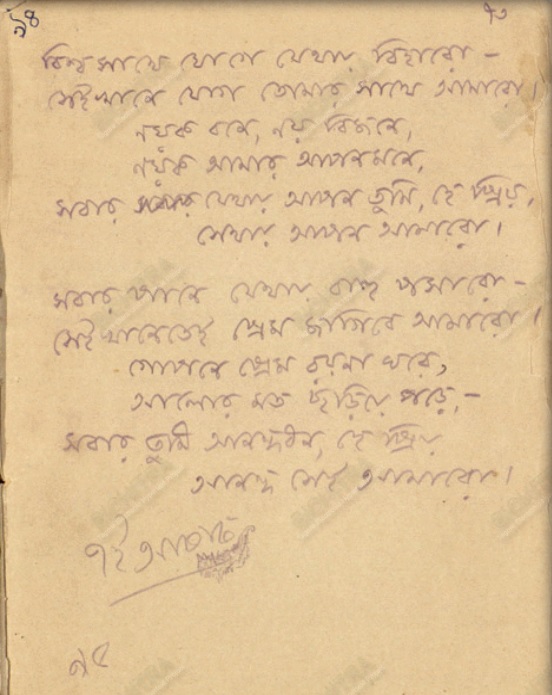 ৯৪
৭৩
বিশ্বসাথে যোগে যেথায় বিহারো –
সেইখানে যোগ তোমার সাথে আমারো।
নয়ক বনে, নয় বিজনে,
নয়ক আমার আপন মনে,
সবার যেথায় আপন তুমি, হে প্রিয়,
সেথায় আপন আমারো।
সবার পানে যেথায় বাহু পসারো –
সেইখানেতেই প্রেম জাগিবে আমারো।
গোপনে প্রেম রয়না ঘরে,
আলোর মত ছড়িয়ে পড়ে, –
সবার তুমি আনন্দধন, হে প্রিয়
আনন্দ সেই আমারো।
৭ই আষাঢ়
৯৫